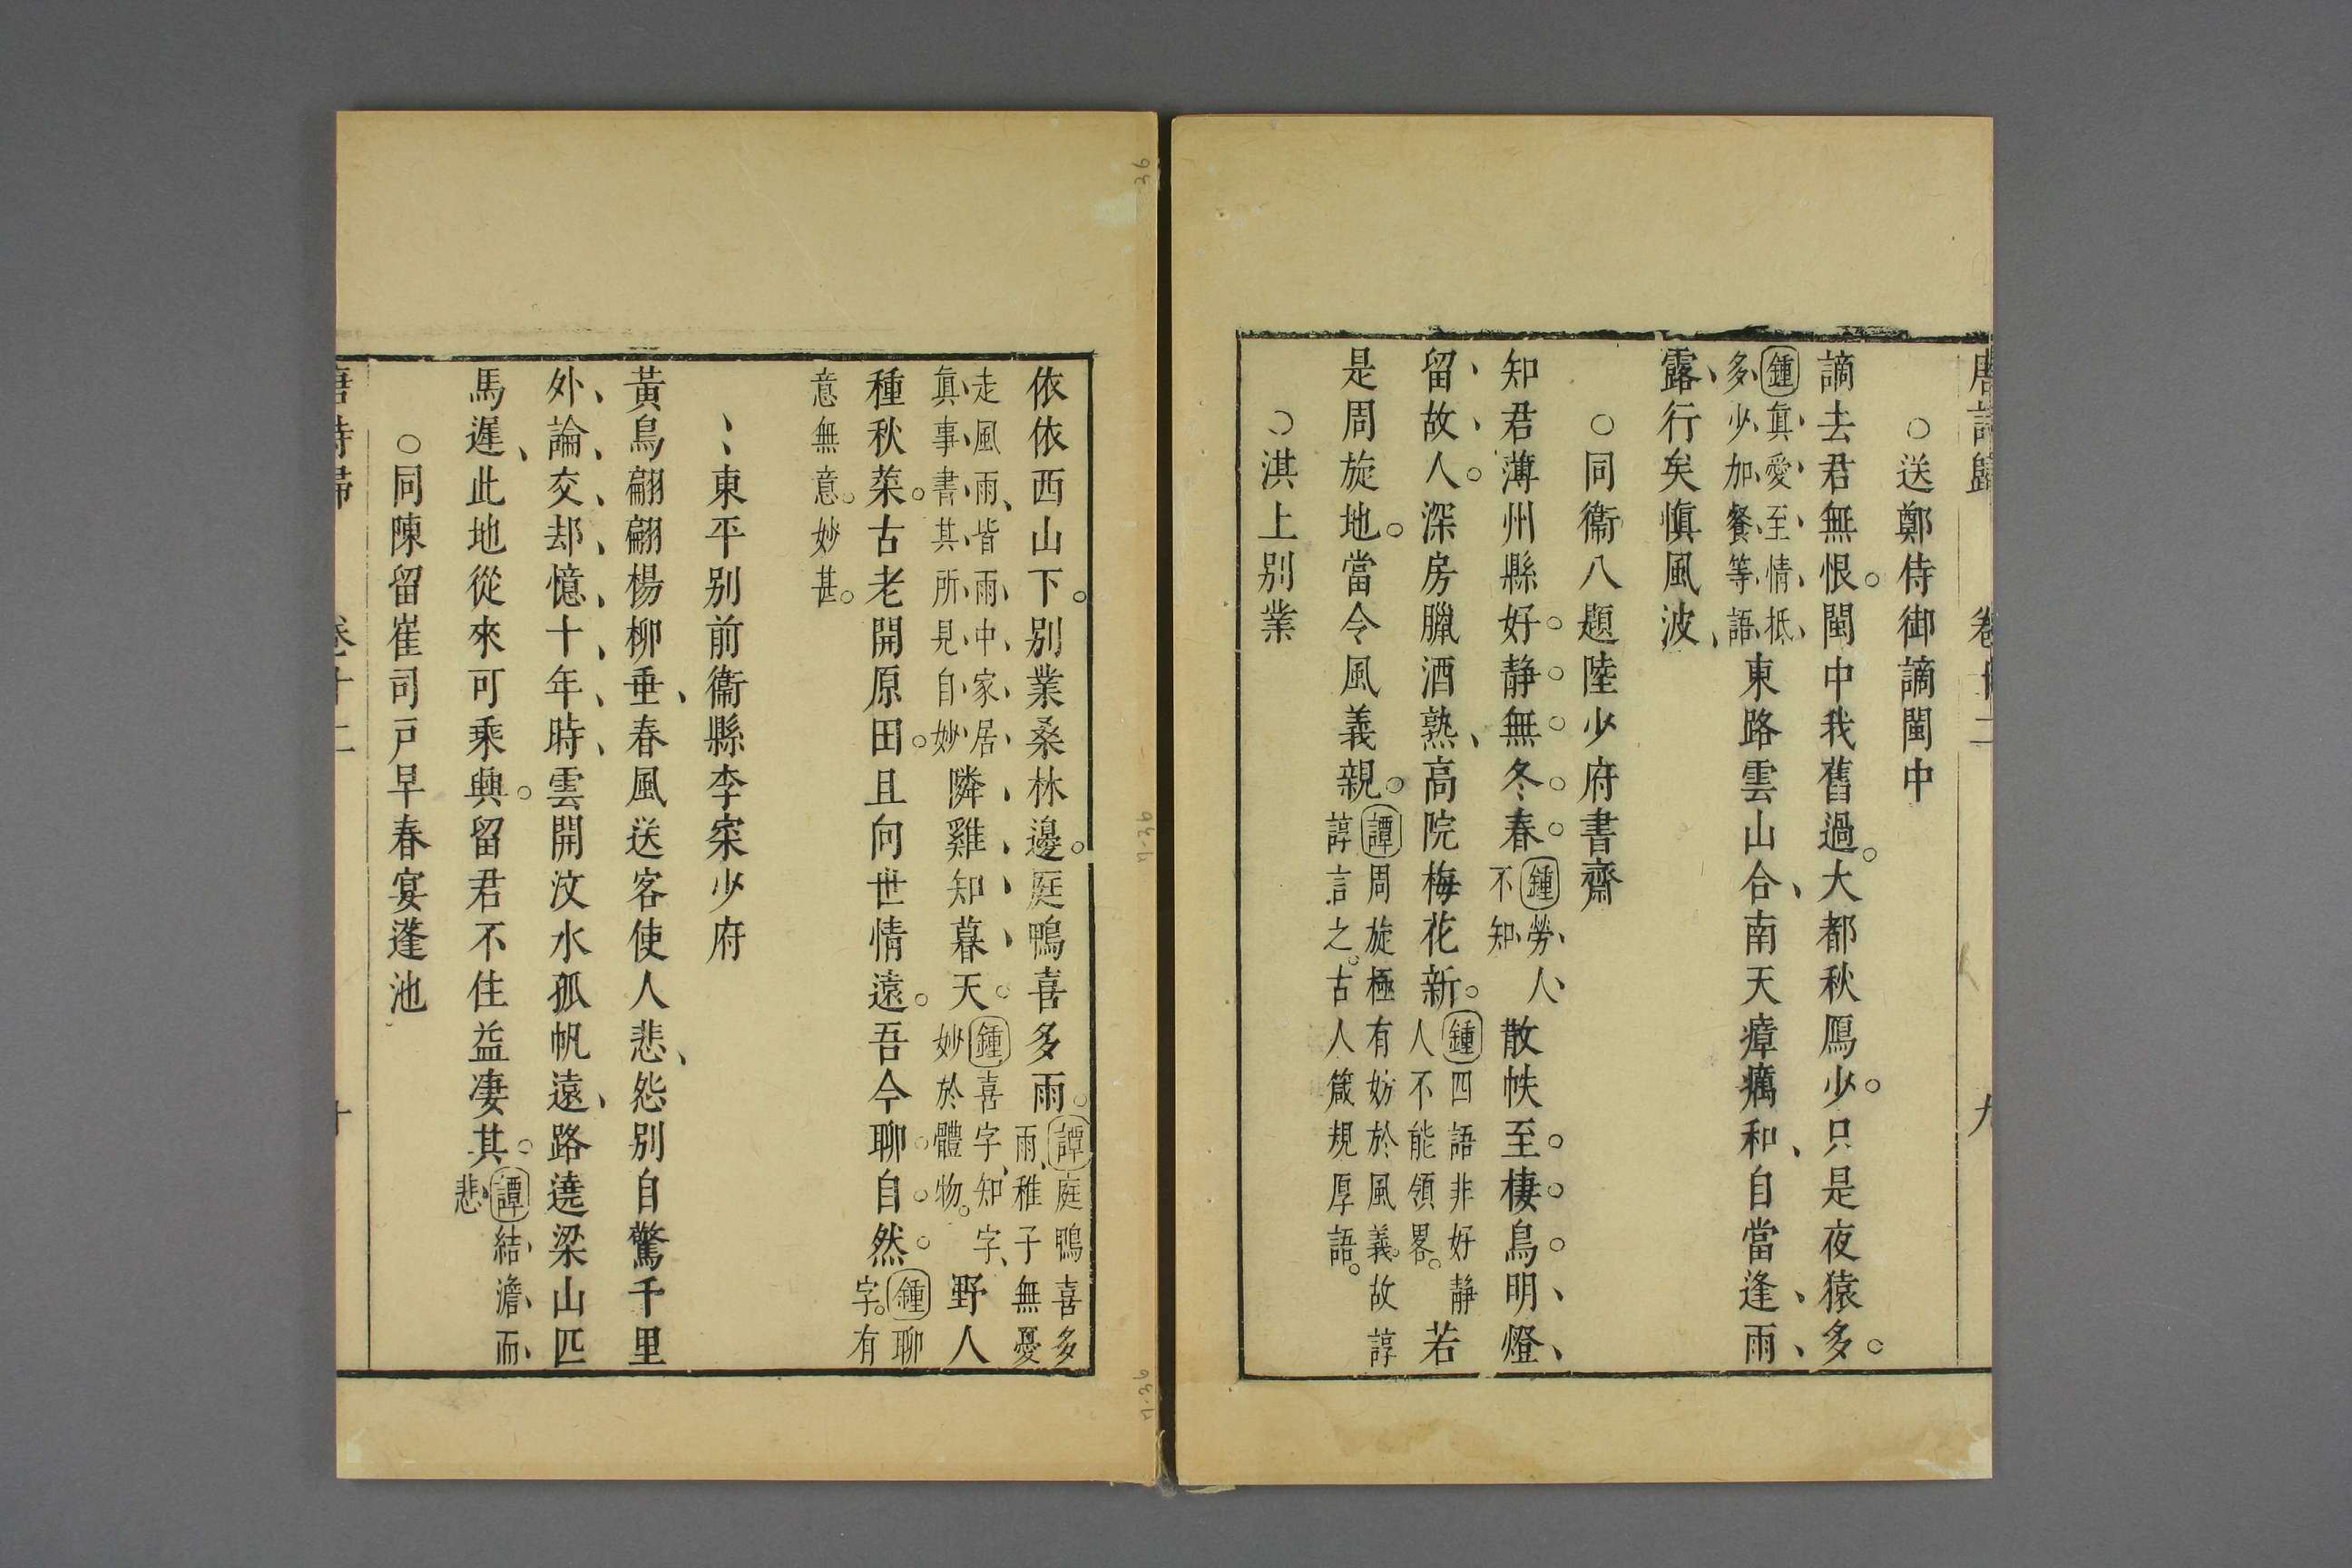 唐詩歸 卷十二 九
○送鄭侍御謫閩中
謫去君無恨。閩中我舊過。大都秋鴈少。只是夜猿多。
鍾真愛至情抵
多少加餐等語
東路雲山合、南天瘴癘和、自當逢雨
露、行矣慎風波、
○同衞八題陸少府書齋
知君薄州縣好靜無冬春。
鍾勞人
不知
散帙至棲鳥明燈、
留故人。深房臘酒熟、高院梅花新。
鍾四語非好靜
人不能領畧。
若
是周旋地。當令風義親。
譚周旋極有妨於風義故諄
諄言之。古人箴規厚語。
○淇上別業
依依西山下。別業桑林邊。庭鴨喜多雨。
譚庭鴨喜多
雨、稚子無憂
走風雨、皆雨中家居
真事書其所見自妙
隣雞知暮天。
鍾喜字、知字、
妙於體物。
野人
種秋菜。古老開原田。且向世情遠。吾今聊自然。
鍾聊
字。有
意無意。妙甚。
、東平別前衞縣李寀少府
黃鳥翩翩楊柳垂、春風送客使人悲、怨別自驚千里
外、論交却憶十年時、雲開汶水孤帆遠、路遶梁山匹
馬遲、此地從來可乘興。留君不住益凄其。
譚結澹而
悲
○同陳留崔司戸早春宴蓬池
唐詩歸 卷十二 十